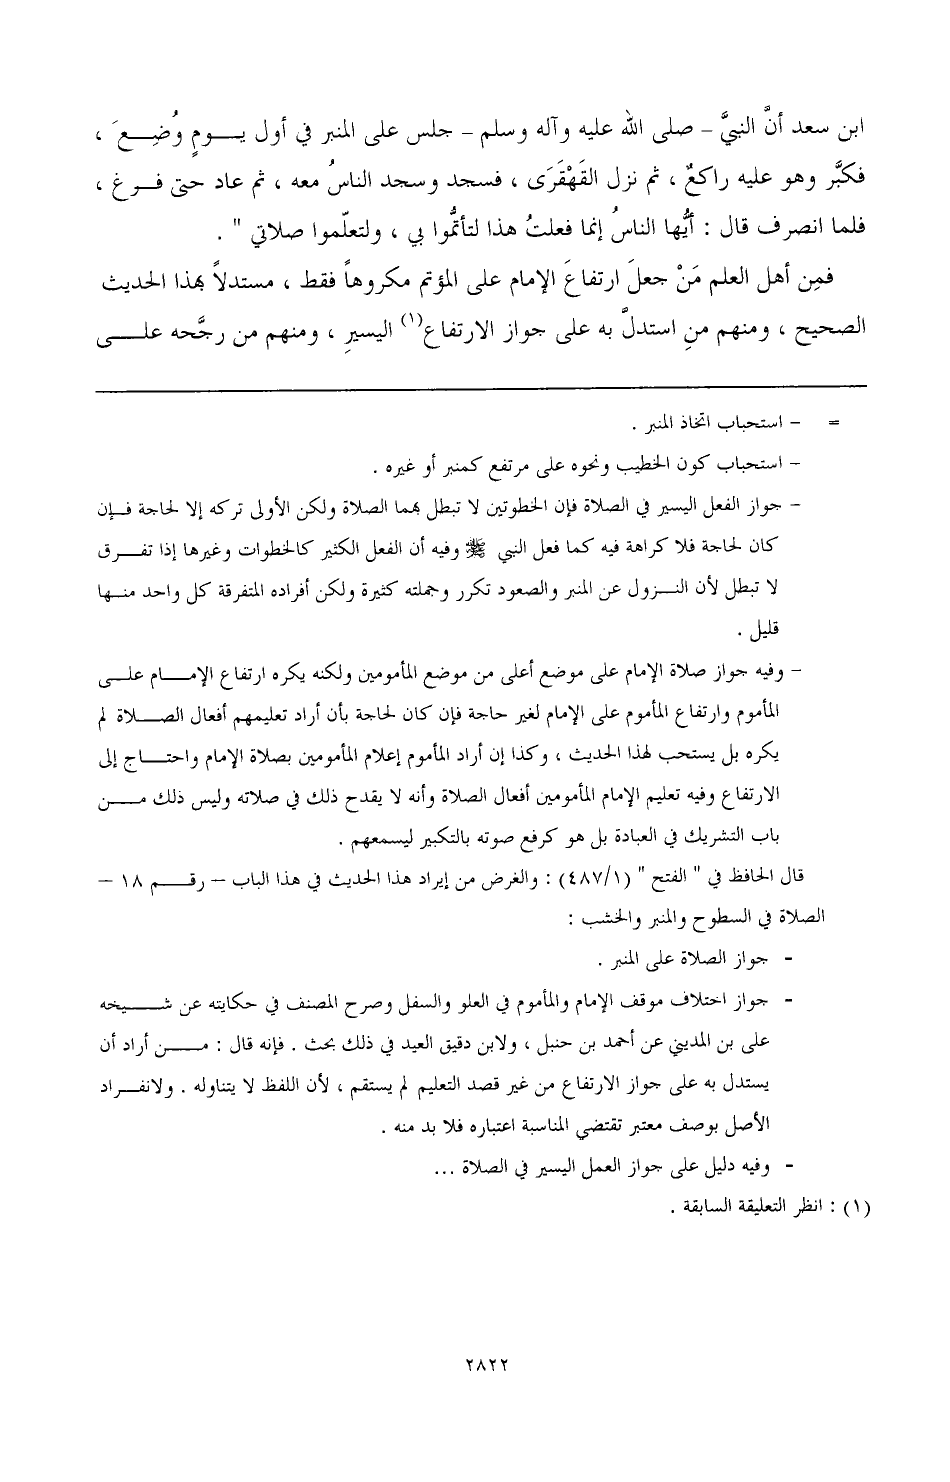 ابن سعد أنَّ النبيَّ - صلى الله عليه وآله وسلم - جلس على المنبر في أول يـــومٍ وُضِـــعَ ،
فكبَّر وهو عليه راكعٌ ، ثم نزل القَهْقَرَى ، فسجد وسجد الناسُ معه ، ثم عاد حتى فـــرغ ،
فلما انصرف قال : أيُّها الناسُ إنما فعلتُ هذا لتأتمُّوا بي ، ولتعلّموا صلاتي " .
فمِن أهل العلم مَنْ جعلَ ارتفاعَ الإمام على المؤتم مكروهاً فقط ، مستدلاً بهذا الحديث
الصحيح ، ومنهم منِ استدلَّ به على جواز الارتفاع(١) اليسيرِ ، ومنهم من رجَّحه علـــى
= - استحباب اتخاذ المنبر .
- استحباب كون الخطيب ونحوه على مرتفع كمنبر أو غيره .
- جواز الفعل اليسير في الصلاة فإن الخطوتين لا تبطل بهما الصلاة ولكن الأولى تركه إلا لحاجة فـــإن
كان لحاجة فلا كراهة فيه كما فعل النبي ﷺ وفيه أن الفعل الكثير كالخطوات وغيرها إذا تفـــرق
لا تبطل لأن النـــزول عن المنبر والصعود تكرر وجملته كثيرة ولكن أفراده المتفرقة كل واحد منـــها
قليل .
- وفيه جواز صلاة الإمام على موضع أعلى من موضع المأمومين ولكنه يكره ارتفاع الإمـــام علـــى
المأموم وارتفاع المأموم على الإمام لغير حاجة فإن كان لحاجة بأن أراد تعليمهم أفعال الصـــلاة لم
يكره بل يستحب لهذا الحديث ، وكذا إن أراد المأموم إعلام المأمومين بصلاة الإمام واحتـــاج إلى
الارتفاع وفيه تعليم الإمام المأمومين أفعال الصلاة وأنه لا يقدح ذلك في صلاته وليس ذلك مـــن
باب التشريك في العبادة بل هو كرفع صوته بالتكبير ليسمعهم .
قال الحافظ في " الفتح " (٤٨٧/١) : والغرض من إيراد هذا الحديث في هذا الباب – رقـــم ١٨ –
الصلاة في السطوح والمنبر والخشب :
- جواز الصلاة على المنبر .
- جواز اختلاف موقف الإمام والمأموم في العلو والسفل وصرح المصنف في حكايته عن شـــيخه
على بن المديني عن أحمد بن حنبل ، ولابن دقيق العيد في ذلك بحث . فإنه قال : مـــن أراد أن
يستدل به على جواز الارتفاع من غير قصد التعليم لم يستقم ، لأن اللفظ لا يتناوله . ولانفـــراد
الأصل بوصف معتبر تقتضي المناسبة اعتباره فلا بد منه .
- وفيه دليل على جواز العمل اليسير في الصلاة ...
(١) : انظر التعليقة السابقة .
٢٨٢٢